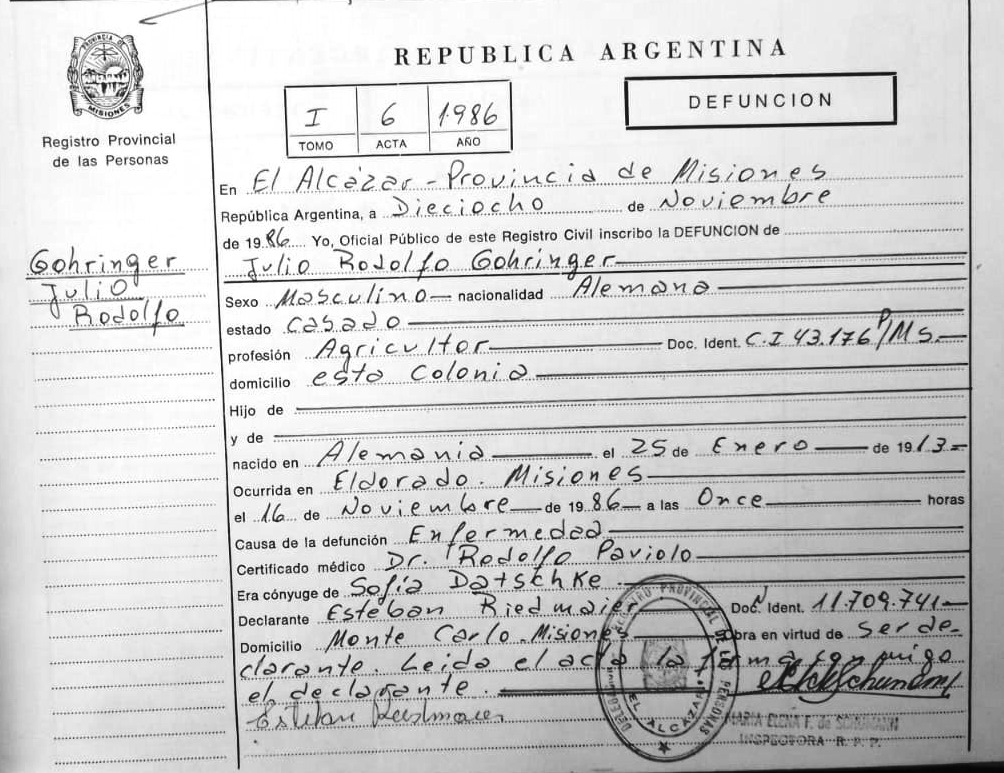 PROVINCIA DE MISIONES
Registro Provincial
de las Personas
Gohringer
Julio
Rodolfo
REPUBLICA ARGENTINA
I 6 1986
TOMO ACTA AÑO
DEFUNCION
En El Alcázar - Provincia de Misiones
República Argentina, a Dieciocho de Noviembre
de 19 86 Yo, Oficial Público de este Registro Civil inscribo la DEFUNCION de
Julio Rodolfo Gohringer
Sexo Masculino nacionalidad Alemana
estado casado
profesión Agricultor Doc. Ident. C.I 43.176 P/MS.
domicilio esta Colonia
Hijo de
y de
nacido en Alemania el 25 de Enero de 19 13
Ocurrida en Eldorado. Misiones
el 16 de Noviembre de 19 86 a las Once horas
Causa de la defunción Enfermedad
Certificado médico Dr. Rodolfo Paviolo
Era cónyuge de Sofía Datschke.
Declarante Esteban Riedmaier Doc. Ident. 11.709.741
Domicilio Monte Carlo - Misiones Obra en virtud de Ser de-
clarante. Leida el acta la firma conmigo
el declarante.
REGISTRO PROVINCIAL DE LAS PERSONAS
EL ALCAZAR
MARIA ELENA F. de SCHUMANN
INSPECTORA R. P. P.